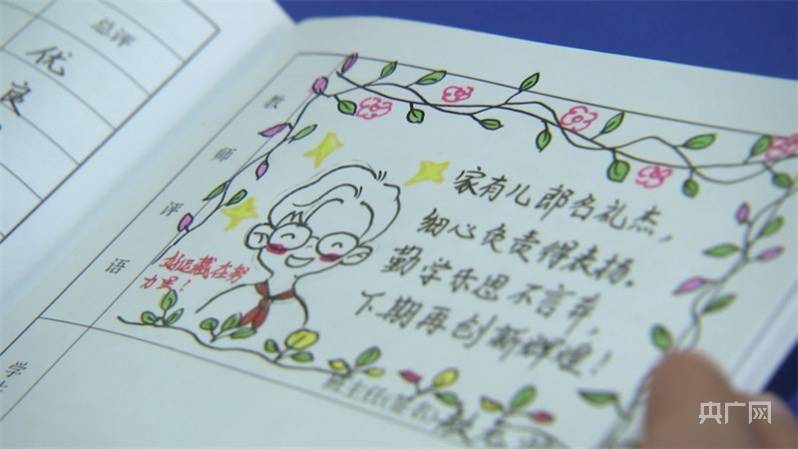 总评
优
良
教师评语
家有儿郎名礼杰，
细心负责得表扬。
勤学乐思不言弃，
下期再创新辉煌！
班主任(签名)
学
央广网